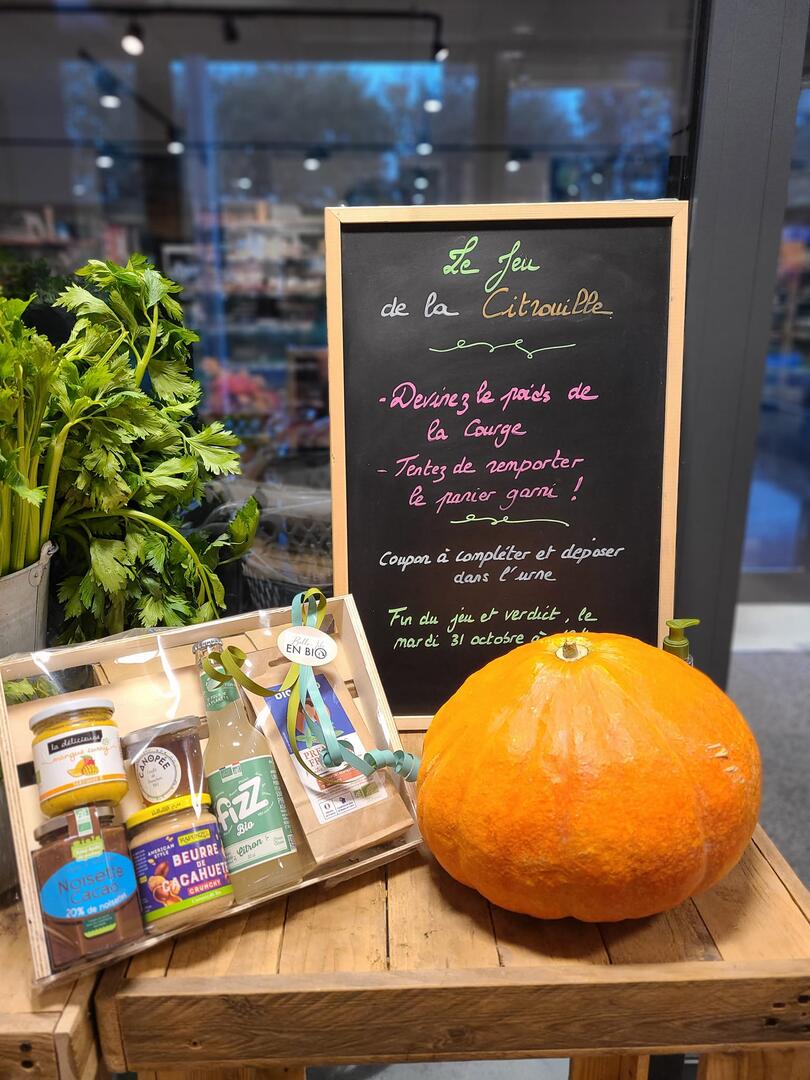 Le Jeu
de la Citrouille
- Devinez le poids de
la Courge
- Tentez de remporter
le panier garni !
Coupon à compléter et déposer
dans l'urne
Fin du jeu et verdict, le
mardi 31 octobre à
EN BIO
la délicieuse
mangue curry
CANOPÉE
fizz
Bio
Citron
Noisette
Cacao
20% de noisettes
RAPUNZEL
AMERICAN
STYLE
BEURRE
DE
CACAHUÈTE
CRUNCHY